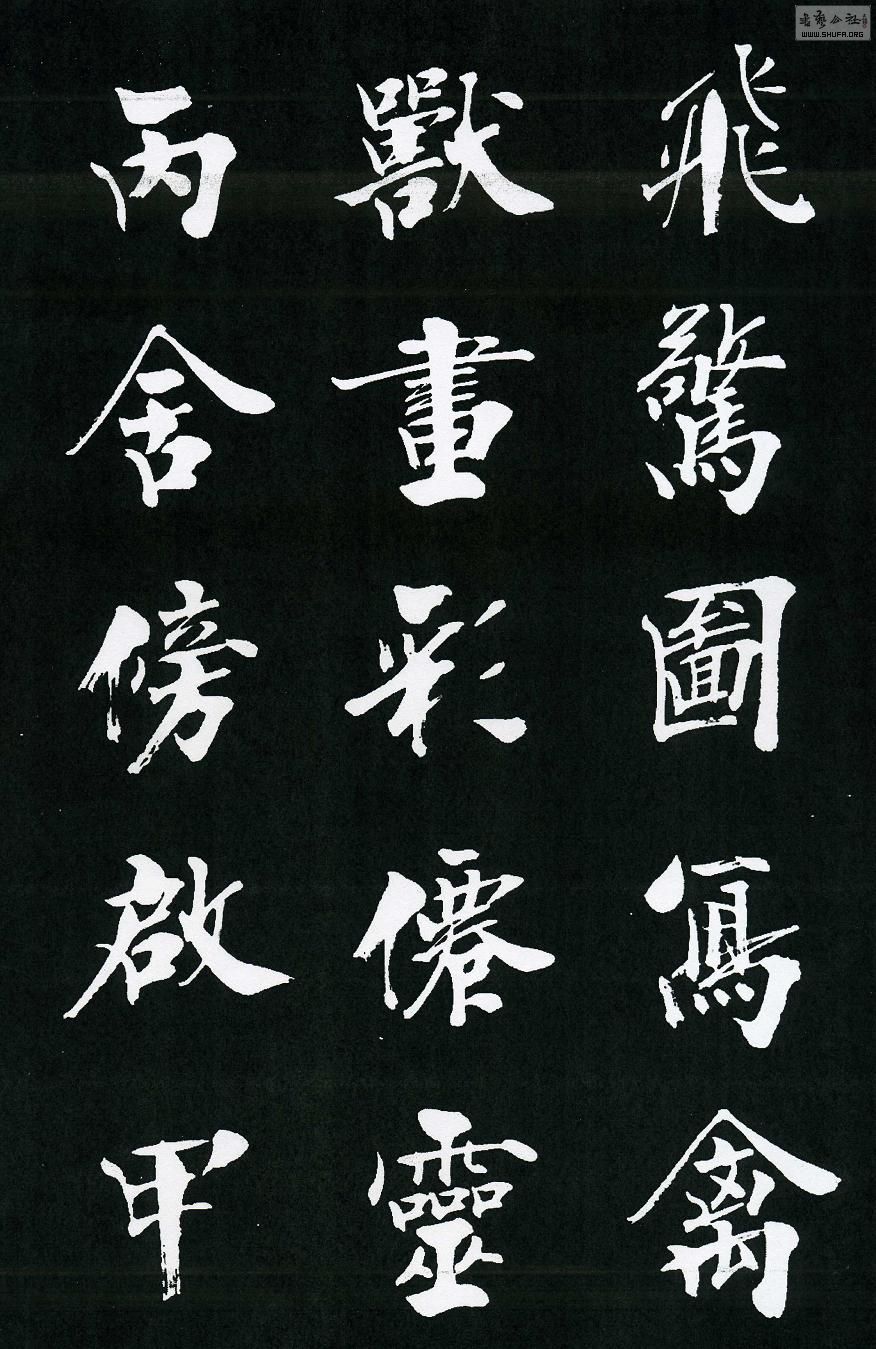 飛驚圖寫禽
獸畫彩僊靈
丙舍傍啟甲
WWW.SHUFA.ORG